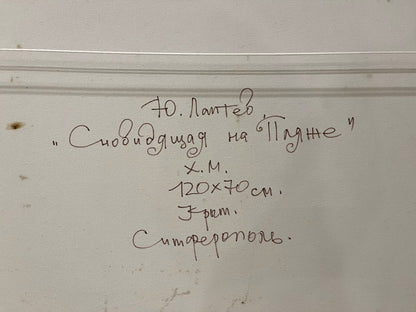 Ю. Лаптев,
"Сновидящая на Пляже"
х.м.
120x70 см.
Крым.
Симферополь.